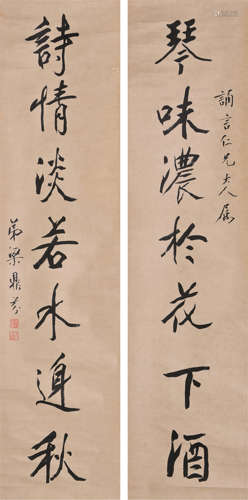 誦言仁兄大人屬
琴味濃於花下酒
詩情淡若水邊秋
弟梁鼎芬